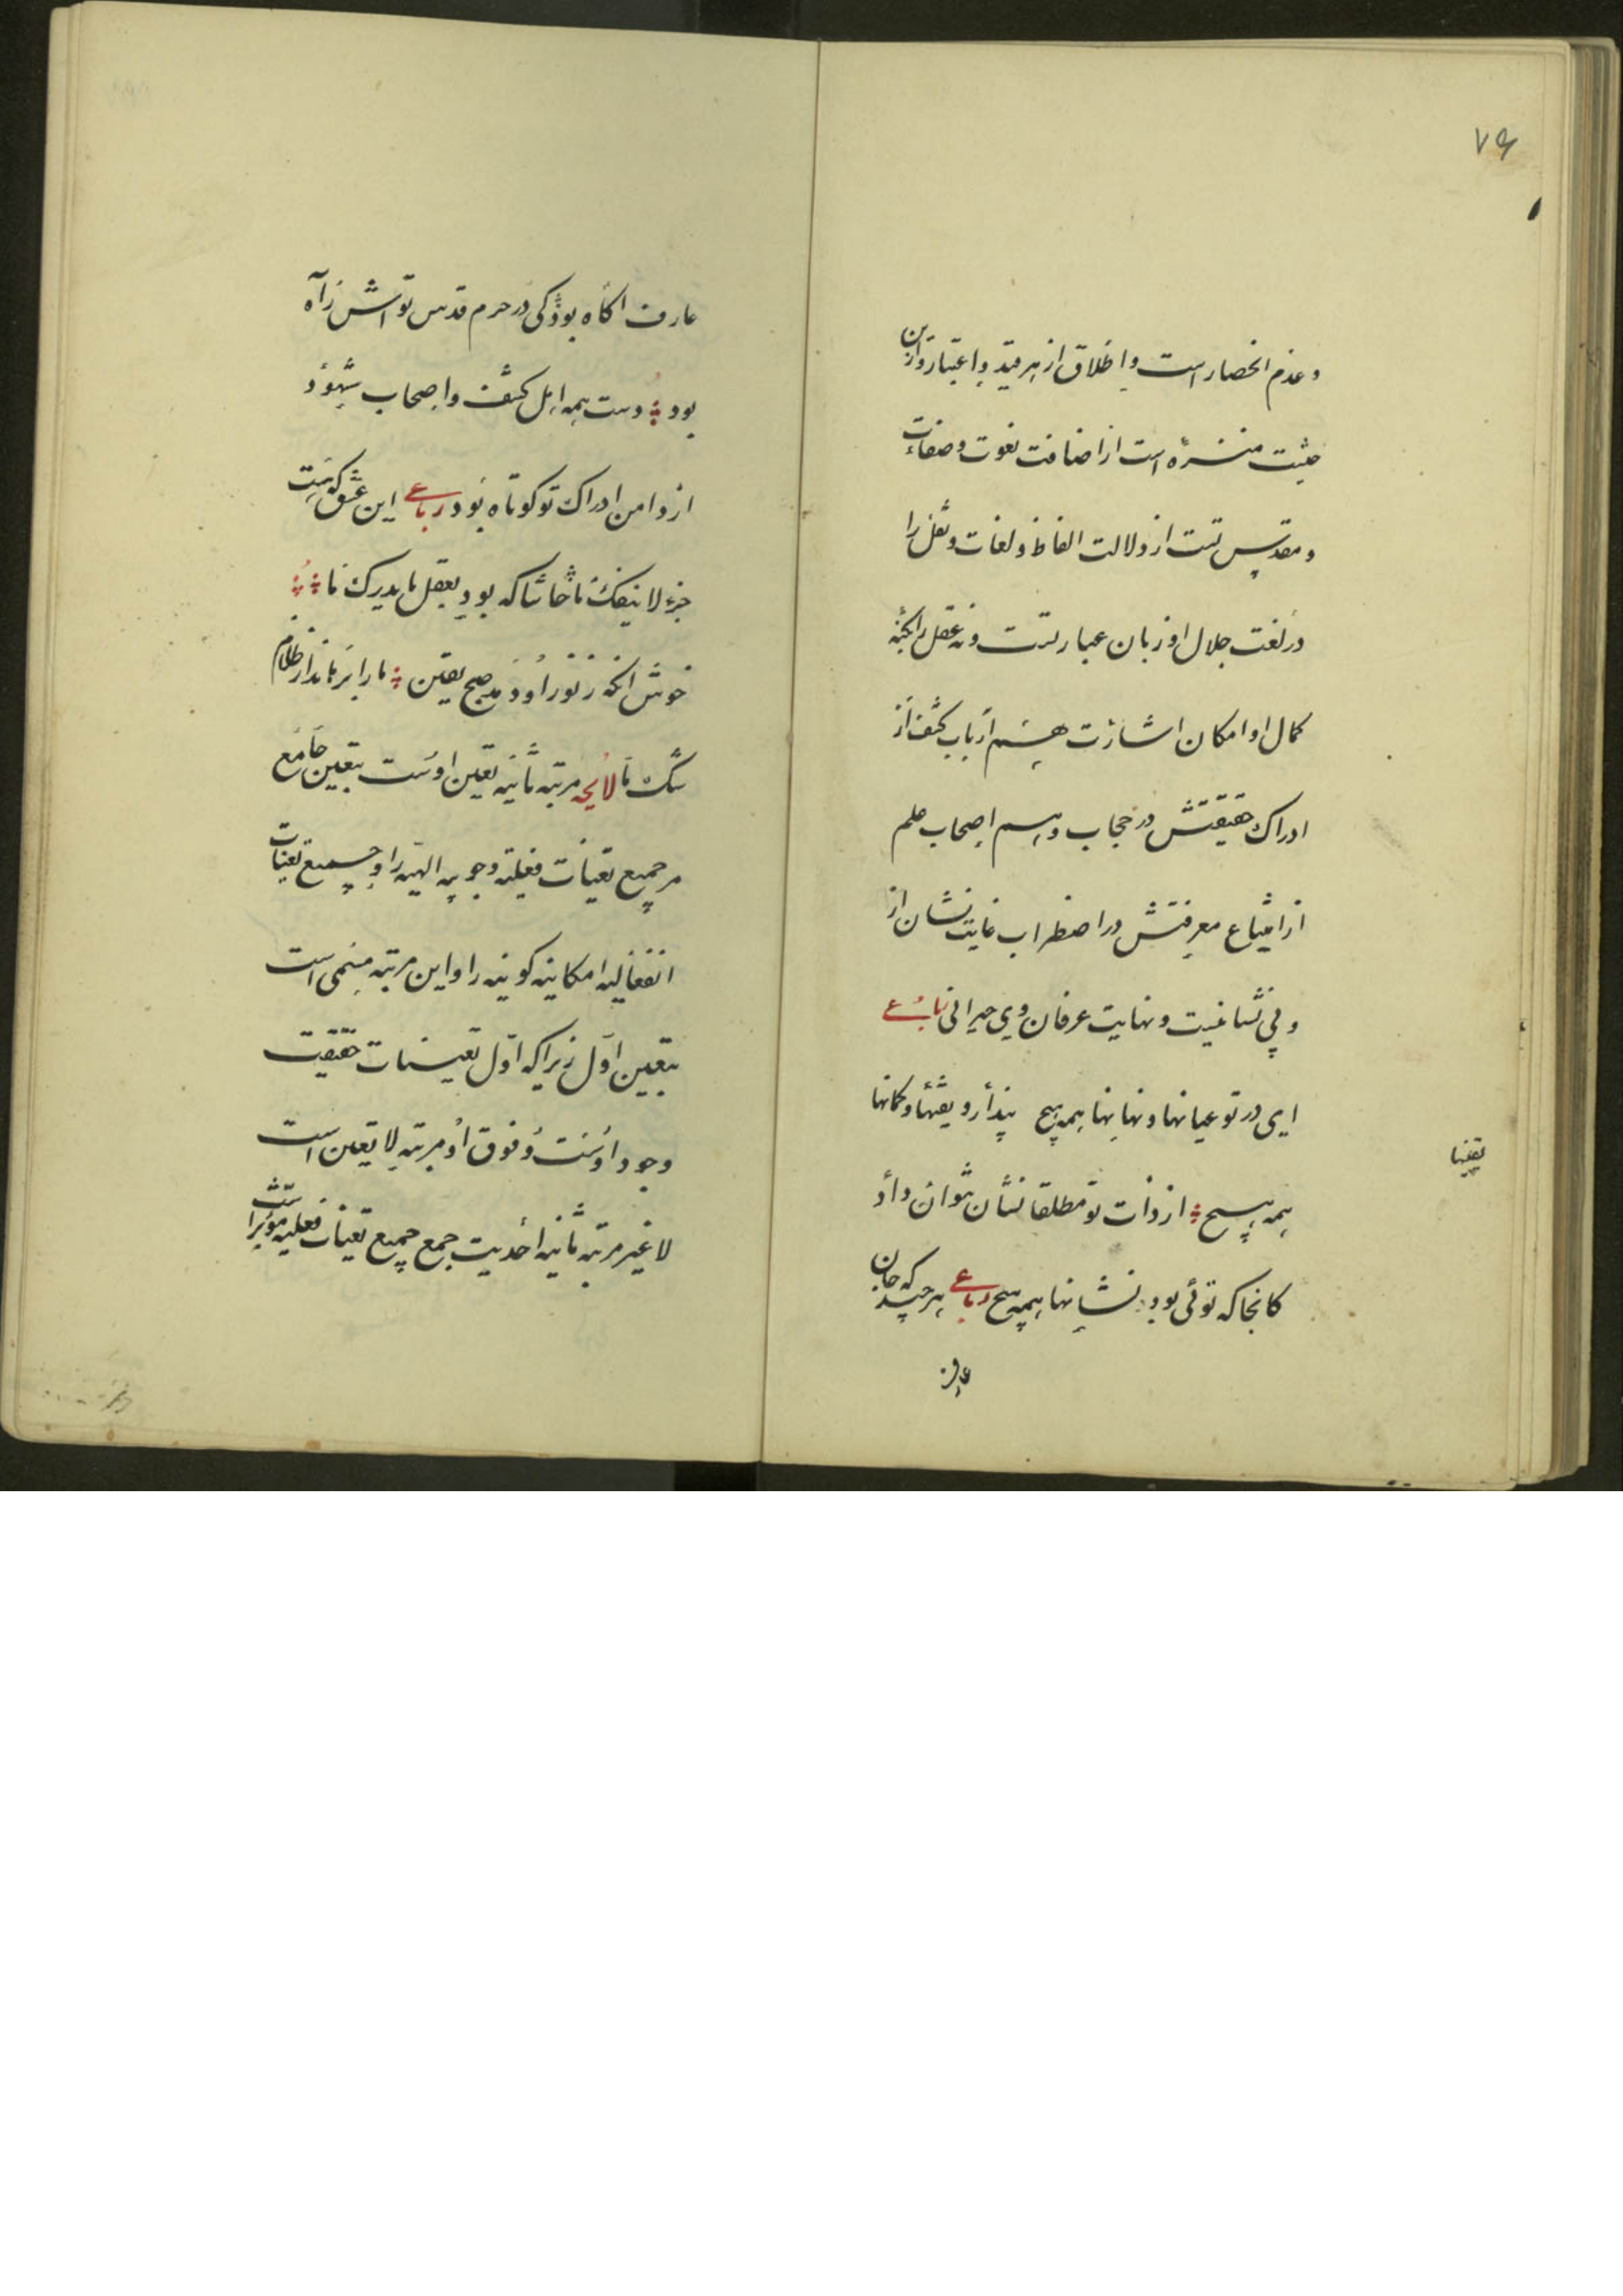 ٧٤
و عدم انحصار است و اطلاق از هر قید و اعتبار و ازین
حیثیت منزه است از اضافت نعوت و صفات
و مقدس است از دلالت الفاظ و لغات و نقل را
در نعت جلال او زبان عبارتست و نه عقل را بکنه
کمال او امکان اشارت هم ارباب کشف از
ادراک حقیقتش در حجاب و هم اصحاب علم
از امتناع معرفتش در اضطراب غایت نشان از
وی بی نشانیست و نهایت عرفان وی حیرانی رباعی
ای در تو عیانها و نهانها همه هیچ پندار و یقینها و گمانها
یقینها
همه هیچ از ذات تو مطلقا نشان نتوان داد
کانجا که توئی بود نشانها همه هیچ رباعی هر چند که جان
عارف
عارف اگاه بود کی در حرم قدس تواش راه
بود دست همه اهل کشف و اصحاب شهود
از دامن ادراک تو کوتاه بود رباعی این عشق که هست
جزء لا ینفک ما حاشا که بود بعقل ما مدرک ما
خوش انکه ز نور او دمد صبح یقین ما را برهاند از ظلام
شک ما لایحه مرتبه ثانیه تعین اوست بتعین جامع
مر جمیع تعینات فعلیه وجوبیه الهیه را و جمیع تعینات
انفعالیه امکانیه کونیه را و این مرتبه مسمی است
بتعین اول زیرا که اول تعینات حقیقت
وجود اوست و فوق او مرتبه لا تعین است
لا غیر مرتبه ثانیه احدیت جمع جمیع تعینات فعلیه مؤثر است